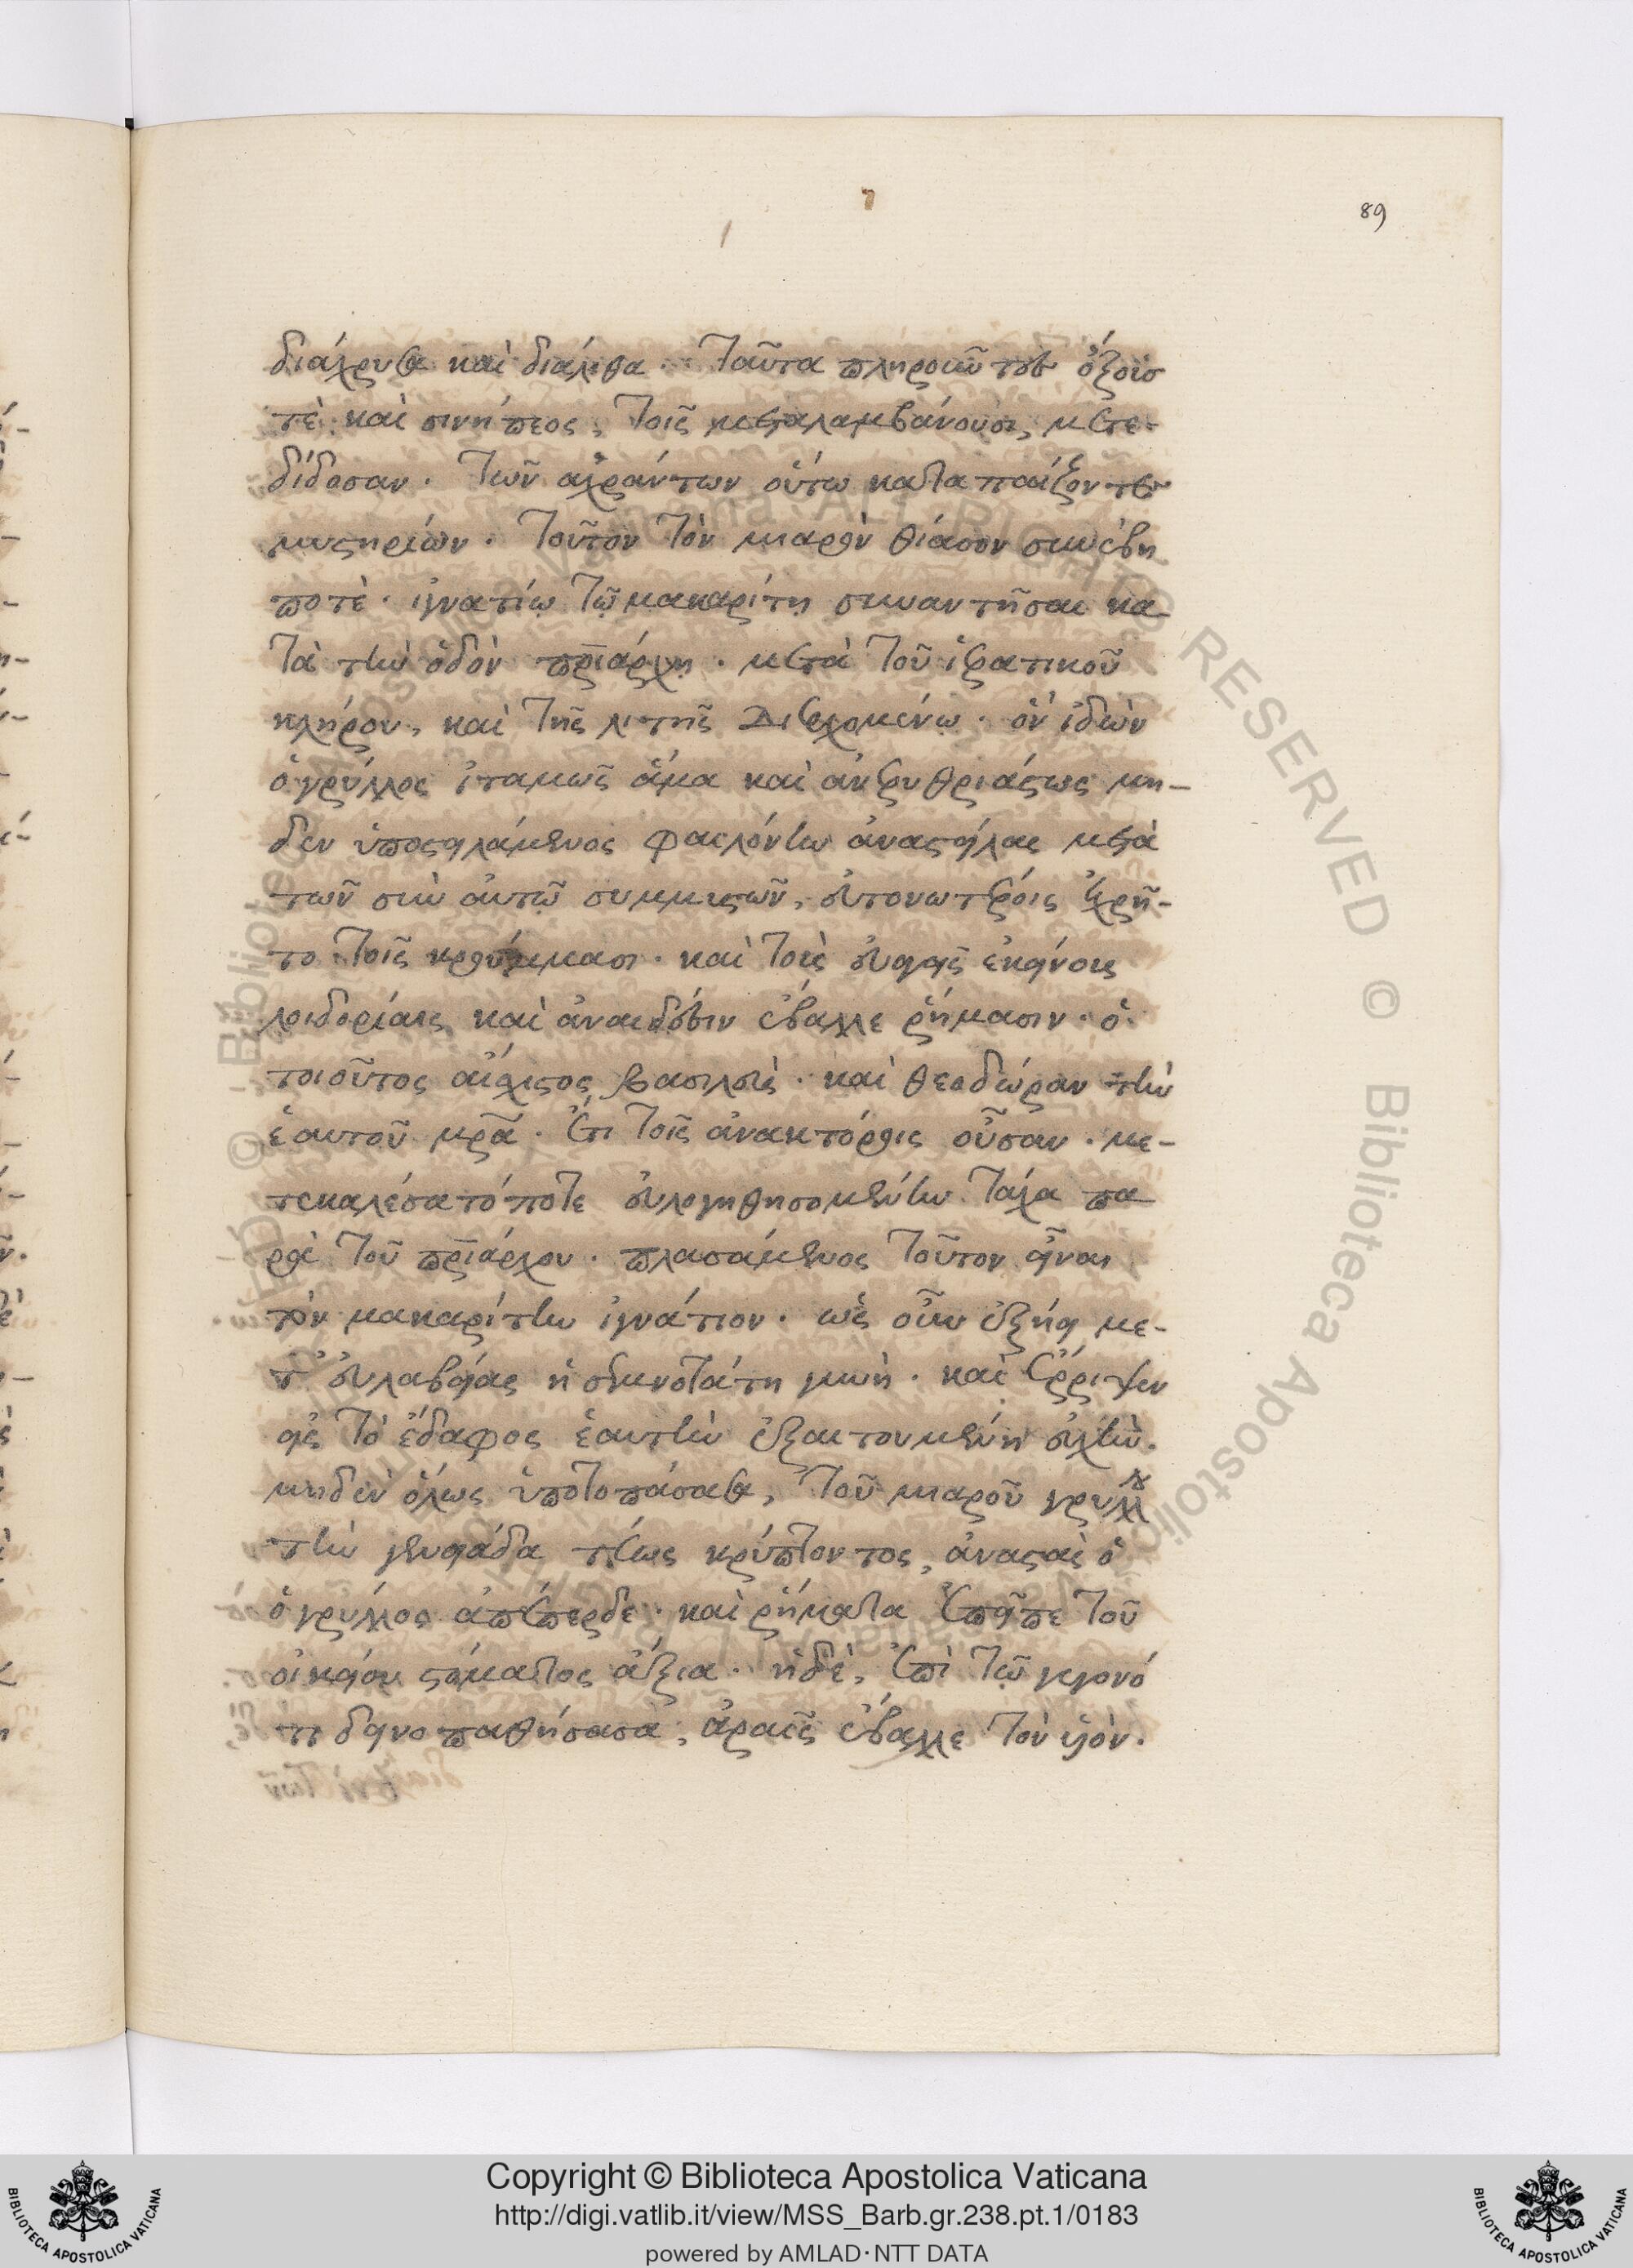 89
διάχρυσα καὶ διάλιθα. Ταῦτα πληροῦντες ὄξους
τὲ καὶ σινήπεος, τοῖς μεταλαμβάνουσι, μετε-
δίδοσαν. Τῶν ἀχράντων οὕτω καταπαίζοντες
μυστηρίων. Τοῦτον τὸν μιαρὸν θίασον συνέβη
ποτὲ. ἰγνατίῳ τῷ μακαρίτῃ συναντῆσαι κα-
τὰ τὴν ὁδὸν πριάρχῃ. μετὰ τοῦ ἱερατικοῦ
κλήρου, καὶ τῆς λιτῆς διερχομένῳ. ὃν ἰδὼν
ὁ γρύλλος ἰταμῶς ἅμα καὶ ἀνερυθριάστως μη-
δεν ὑποστειλάμενος φαιλόνην ἀναστείλας μετὰ
τῶν σὺν αὐτῷ συμμυστῶν, εὐτονωτέροις ἐχρῆ-
το τοῖς κρούμμασι. καὶ τοὺς εὐαγεῖς ἐκείνους
λοιδορίαις καὶ ἀναιδέσιν ἔβαλλε ῥήμασιν. ὁ
τοιοῦτος αἴσχιστος βασιλεὺς. καὶ θεοδώραν τὴν
ἑαυτοῦ μρᾶ. ἔτι τοῖς ἀνακτόροις οὖσαν. με-
τεκαλέσατό ποτε εὐλογηθησομένην τάχα πα
ρὰ τοῦ πριάρχου. πλασάμενος τοῦτον εἶναι
τὸν μακαρίτην ἰγνάτιον. ὡς οὖν ἐξῄει με-
τ' εὐλαβείας ἡ σεμνοτάτη γυνὴ. καὶ ἔρριψεν
εἰς τὸ ἔδαφος ἑαυτὴν ἐξαιτουμένη εὐχὴν.
μηδὲν ὅλως ὑποτοπάσασα, τοῦ μιαροῦ γρύλλ
τὴν γενειάδα τέως κρύπτοντος, ἀναστὰς ὁ
ὁ γρύλλος ἀπέπερδε. καὶ ῥήματα ἐπεῖπε τοῦ
οἰκείου στόματος ἄξια. ἡ δὲ, ἐπὶ τῷ γεγονό
τι δεινοπαθήσασα, ἀραῖς ἔβαλλε τὸν υἱόν.
© Biblioteca Apostolica Vaticana ALL RIGHTS RESERVED © Biblioteca Apostolica Vaticana
Copyright © Biblioteca Apostolica Vaticana
http://digi.vatlib.it/view/MSS_Barb.gr.238.pt.1/0183
powered by AMLAD·NTT DATA
BIBLIOTECA APOSTOLICA VATICANA
BIBLIOTECA APOSTOLICA VATICANA